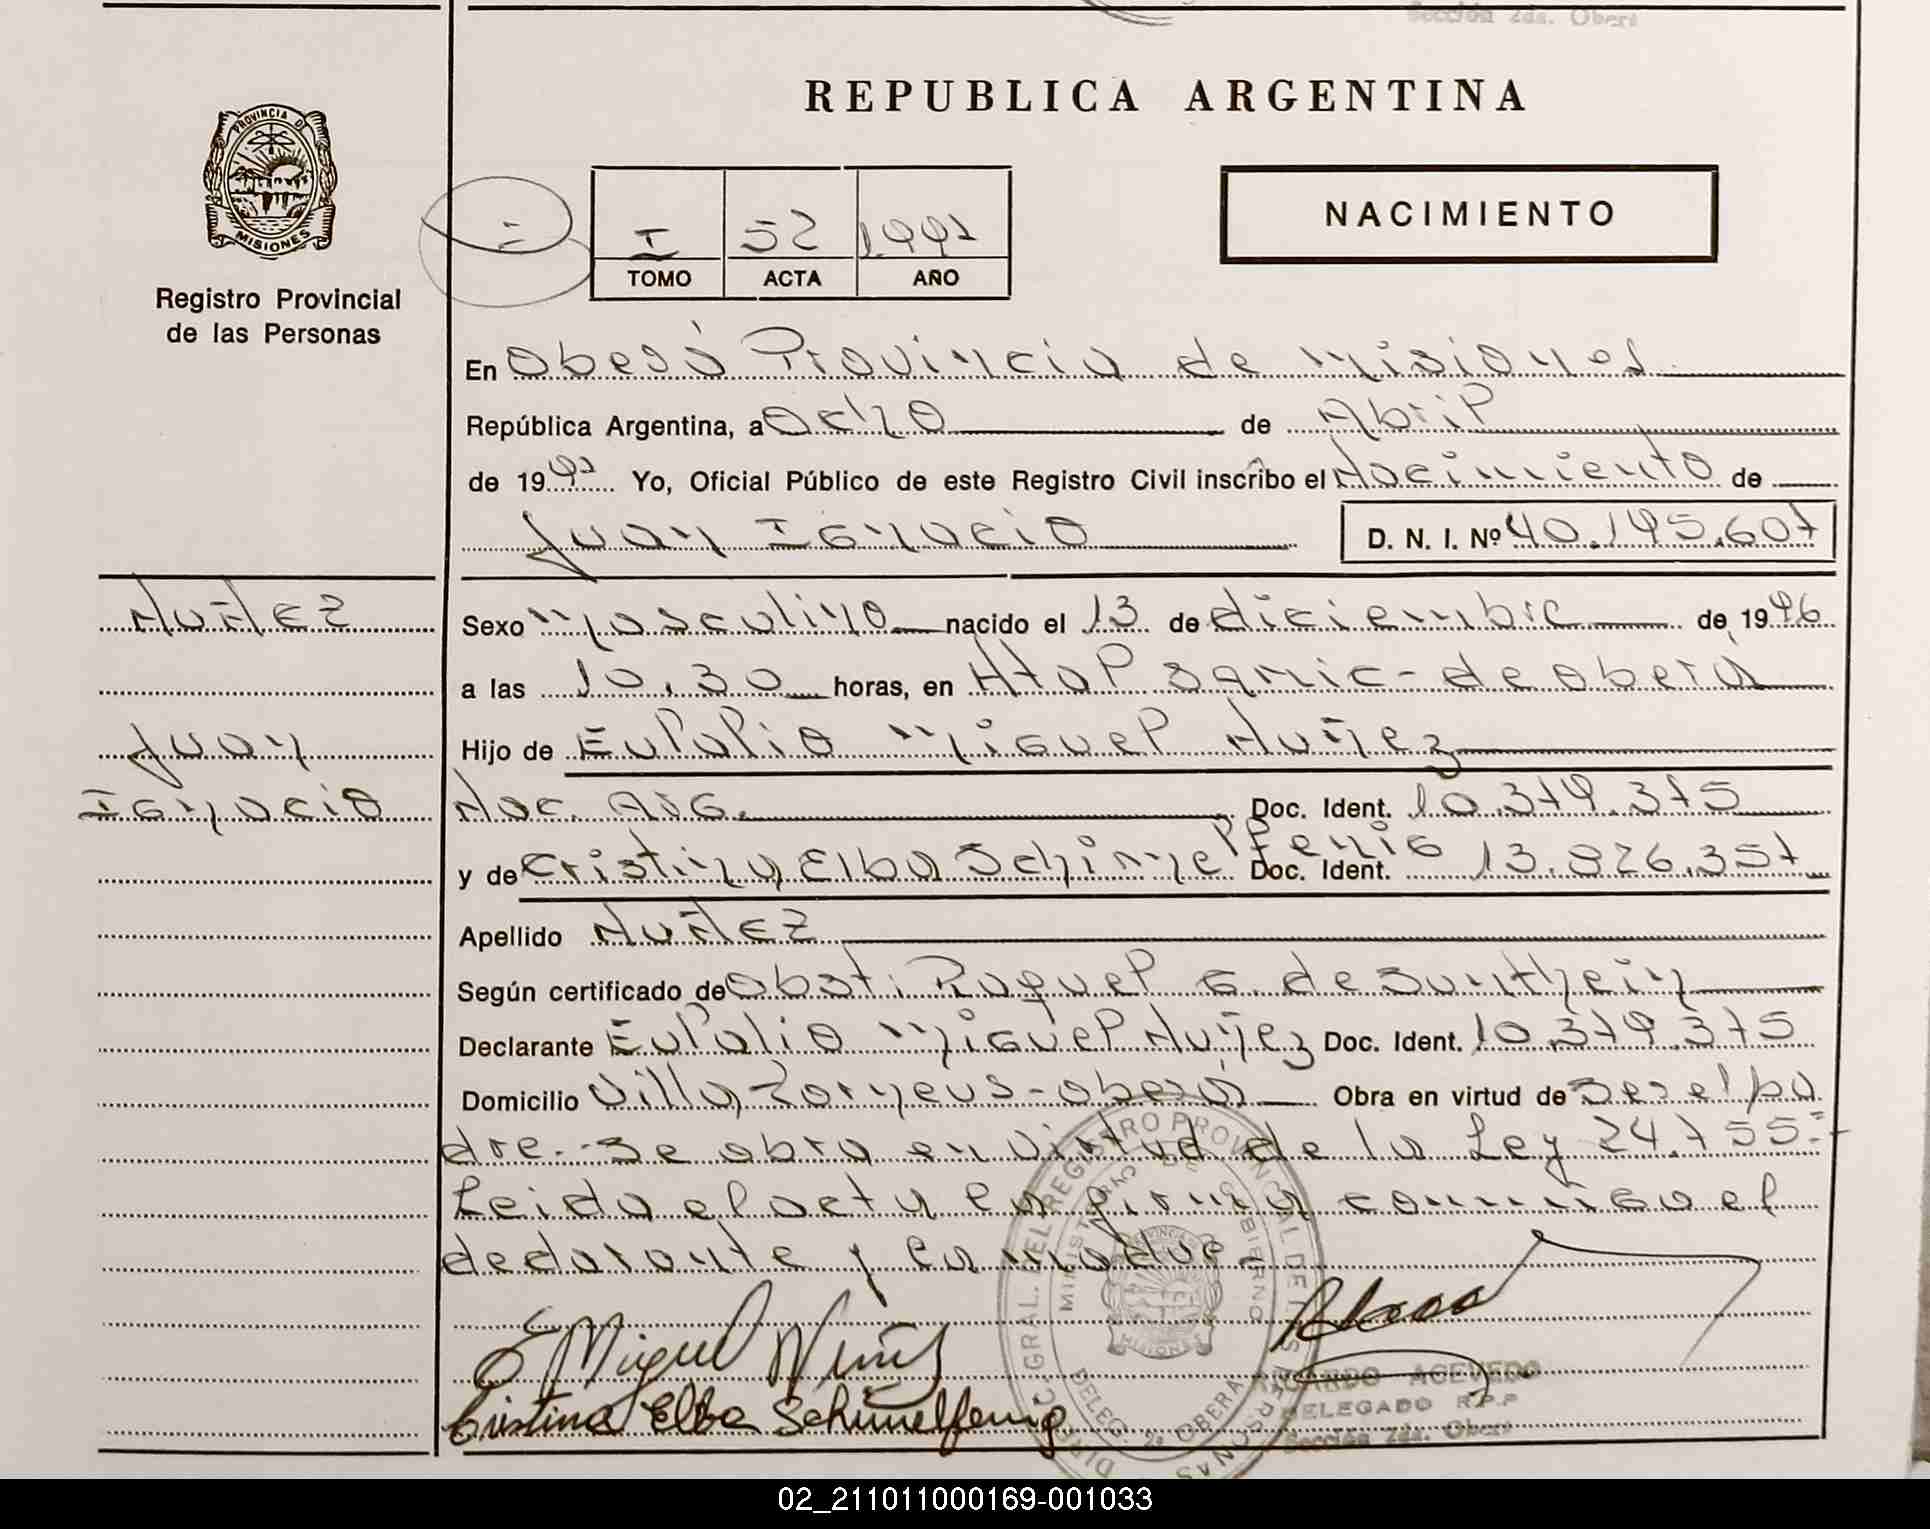 Sección 2da. Oberá
REPUBLICA ARGENTINA
PROVINCIA DE
MISIONES
Registro Provincial
de las Personas
I 52 1.997
TOMO ACTA AÑO
NACIMIENTO
En Oberá Provincia de Misiones
República Argentina, a Ocho de Abril
de 1997 Yo, Oficial Público de este Registro Civil inscribo el Nacimiento de
Juan Ignacio D. N. I. Nº 40.195.607
NUÑEZ
Juan
Ignacio
Sexo Masculino nacido el 13 de diciembre de 1996
a las 10.30 horas, en Htal Samic - de Oberá
Hijo de Eulalio Miguel Nuñez
Nac. Arg. Doc. Ident. 10.379.375
y de Cristina Elba Schimmelpfenig Doc. Ident. 13.826.357
Apellido NUÑEZ
Según certificado de Obst. Raquel G. de Sunthein
Declarante Eulalio Miguel Nuñez Doc. Ident. 10.379.375
Domicilio Villa Oberá Obra en virtud de Ser el pa
dre.- Se obra en virtud de la Ley 24.755.-
Leida el acta la firma conmigo el
declarante y la madre.
E Miguel Nuñez
Cristina Elba Schimelfenig
DIREC. GRAL. DEL REGISTRO PROVINCIAL DE LAS PERSONAS
MINISTERIO DE GOBIERNO
PROVINCIA
MISIONES
DELEG. 2ª OBERA
RICARDO ACEVEDO
DELEGADO R.P.P
Sección 2da. Oberá
02_211011000169-001033